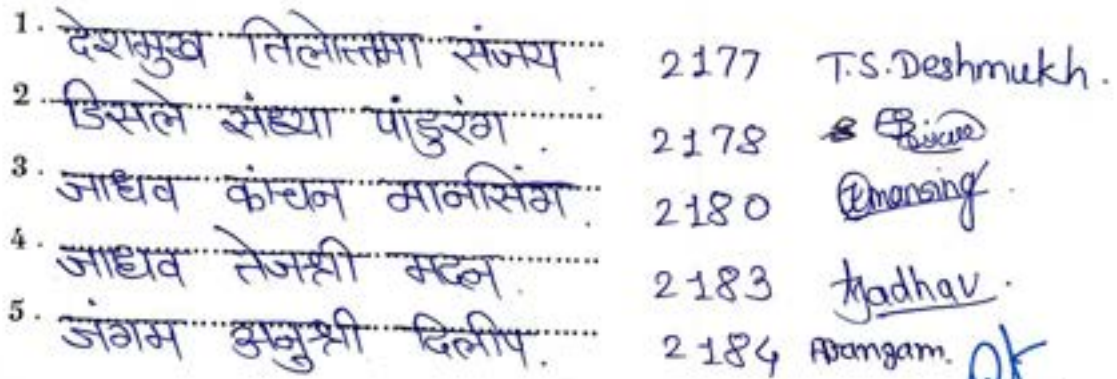 1. देशमुख तिलोत्तमा संजय 2177 T.S.Deshmukh.
2. डिसले संध्या पांडुरंग. 2178
3. जाधव कांचन मानसिंग. 2180 Kmansing.
4. जाधव तेजश्री मदन. 2183 Tjadhav.
5. जंगम अनुश्री दिलीप. 2184 AJangam.